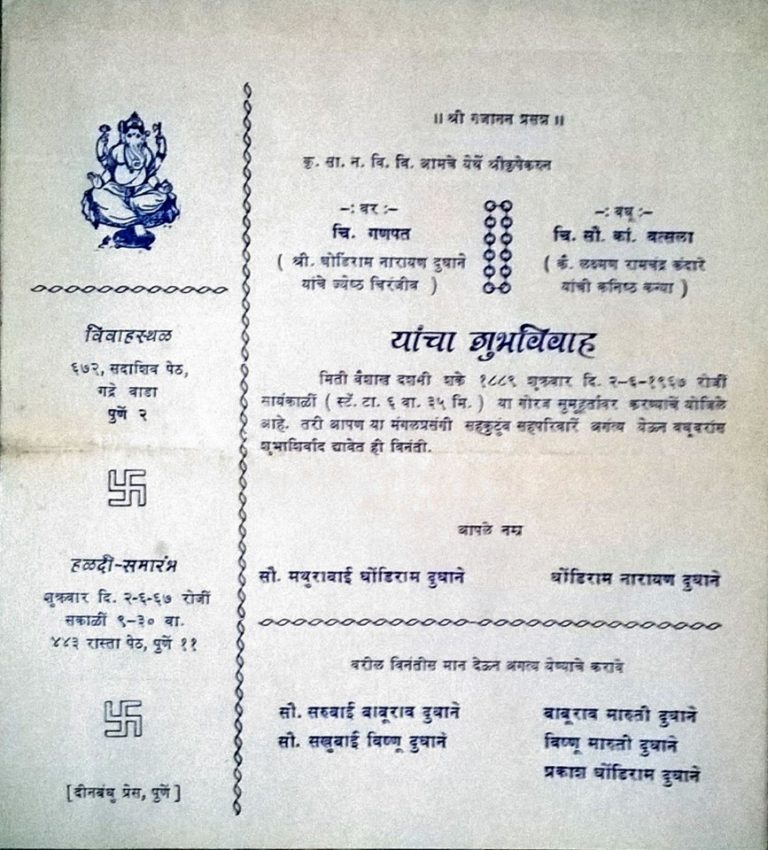 ॥ श्री गजानन प्रसन्न ॥
कृ. सा. न. वि. वि. आमचे येथें श्रीकृपेकरून
-: वर :-
चि. गणपत
( श्री. धोंडिराम नारायण दुधाने
यांचे ज्येष्ठ चिरंजीव )
-: वधू :-
चि. सौ. कां. वत्सला
( कै. लक्ष्मण रामचंद्र कंदारे
यांची कनिष्ठ कन्या )
यांचा शुभविवाह
मिती वैशाख दशमी शके १८८९ शुक्रवार दि. २-६-१९६७ रोजीं
सायंकाळीं ( स्टॅ. टा. ६ वा. ३५ मि. ) या गोरज सुमूहूर्तावर करण्याचें योजिले
आहे. तरी आपण या मंगलप्रसंगी सहकुटुंब सहपरिवारें अगत्य येऊन वधूवरांस
शुभाशिर्वाद द्यावेत ही विनंती.
आपले नम्र
सौ. मथुराबाई धोंडिराम दुधाने
धोंडिराम नारायण दुधाने
वरील विनंतीस मान देऊन अगत्य येण्याचे करावे
सौ. सरुबाई बाबूराव दुधाने
सौ. सखुबाई विष्णू दुधाने
बाबूराव मारुती दुधाने
विष्णू मारुती दुधाने
प्रकाश धोंडिराम दुधाने
विवाहस्थळ
६७२, सदाशिव पेठ,
गद्रे वाडा
पुणें २
हळदी-समारंभ
शुक्रवार दि. २-६-६७ रोजीं
सकाळीं ९-३० वा.
४४३ रास्ता पेठ, पुणें ११
[ दीनबंधु प्रेस, पुणें ]